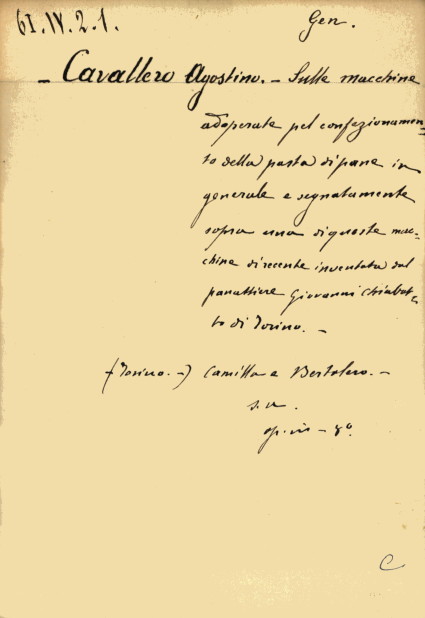 61.IV.2.1. Gen.
- Cavallero Agostino. - Sulle macchine
adoperate pel confezionamen=
to della pasta di pane in
generale e segnatamente
sopra una di queste mac=
chine di recente inventata dal
panattiere Giovanni Chiabot=
to di Torino. -
(Torino. -) Camilla e Bertolero. -
s. a.
op. in - 8°.
C